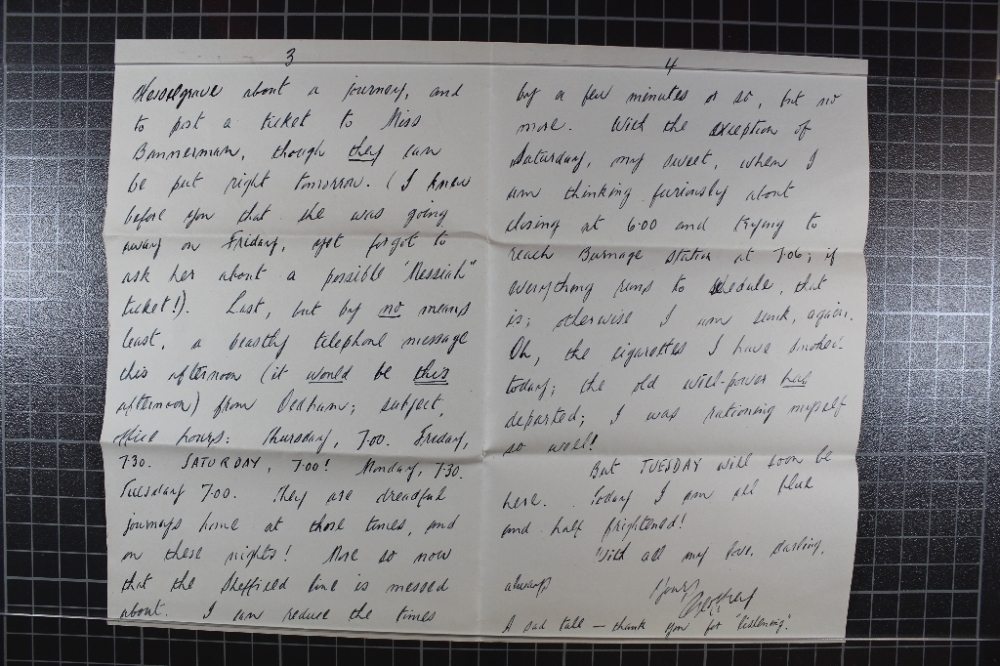 3
Hesselgrave about a journey, and
to post a ticket to Miss
Bannerman, though they can
be put right tomorrow. (I knew
before you that she was going
away on Friday, yet forgot to
ask her about a possible "Messiah"
ticket!). Last, but by no means
least, a beastly telephone message
this afternoon (it would be this
afternoon) from Dedham; subject,
office hours: Thursday, 7.00. Friday,
7.30. SATURDAY, 7.00! Monday, 7.30.
Tuesday 7.00. They are dreadful
journeys home at those times, and
on these nights! More so now
that the Sheffield line is messed
about. I can reduce the times
4
by a few minutes or so, but no
more. With the exception of
Saturday, my sweet, when I
am thinking furiously about
closing at 6.00 and trying to
reach Burnage station at 7.06; if
everything runs to schedule, that
is; otherwise I am sunk, again.
Oh, the cigarettes I have smoked
today; the old will-power has
departed; I was rationing myself
so well!
But TUESDAY will soon be
here. Today I am all blue
and half frightened!
With all my love, darling,
always
Yours
Geoffrey
A sad tale — thank you for "listening".